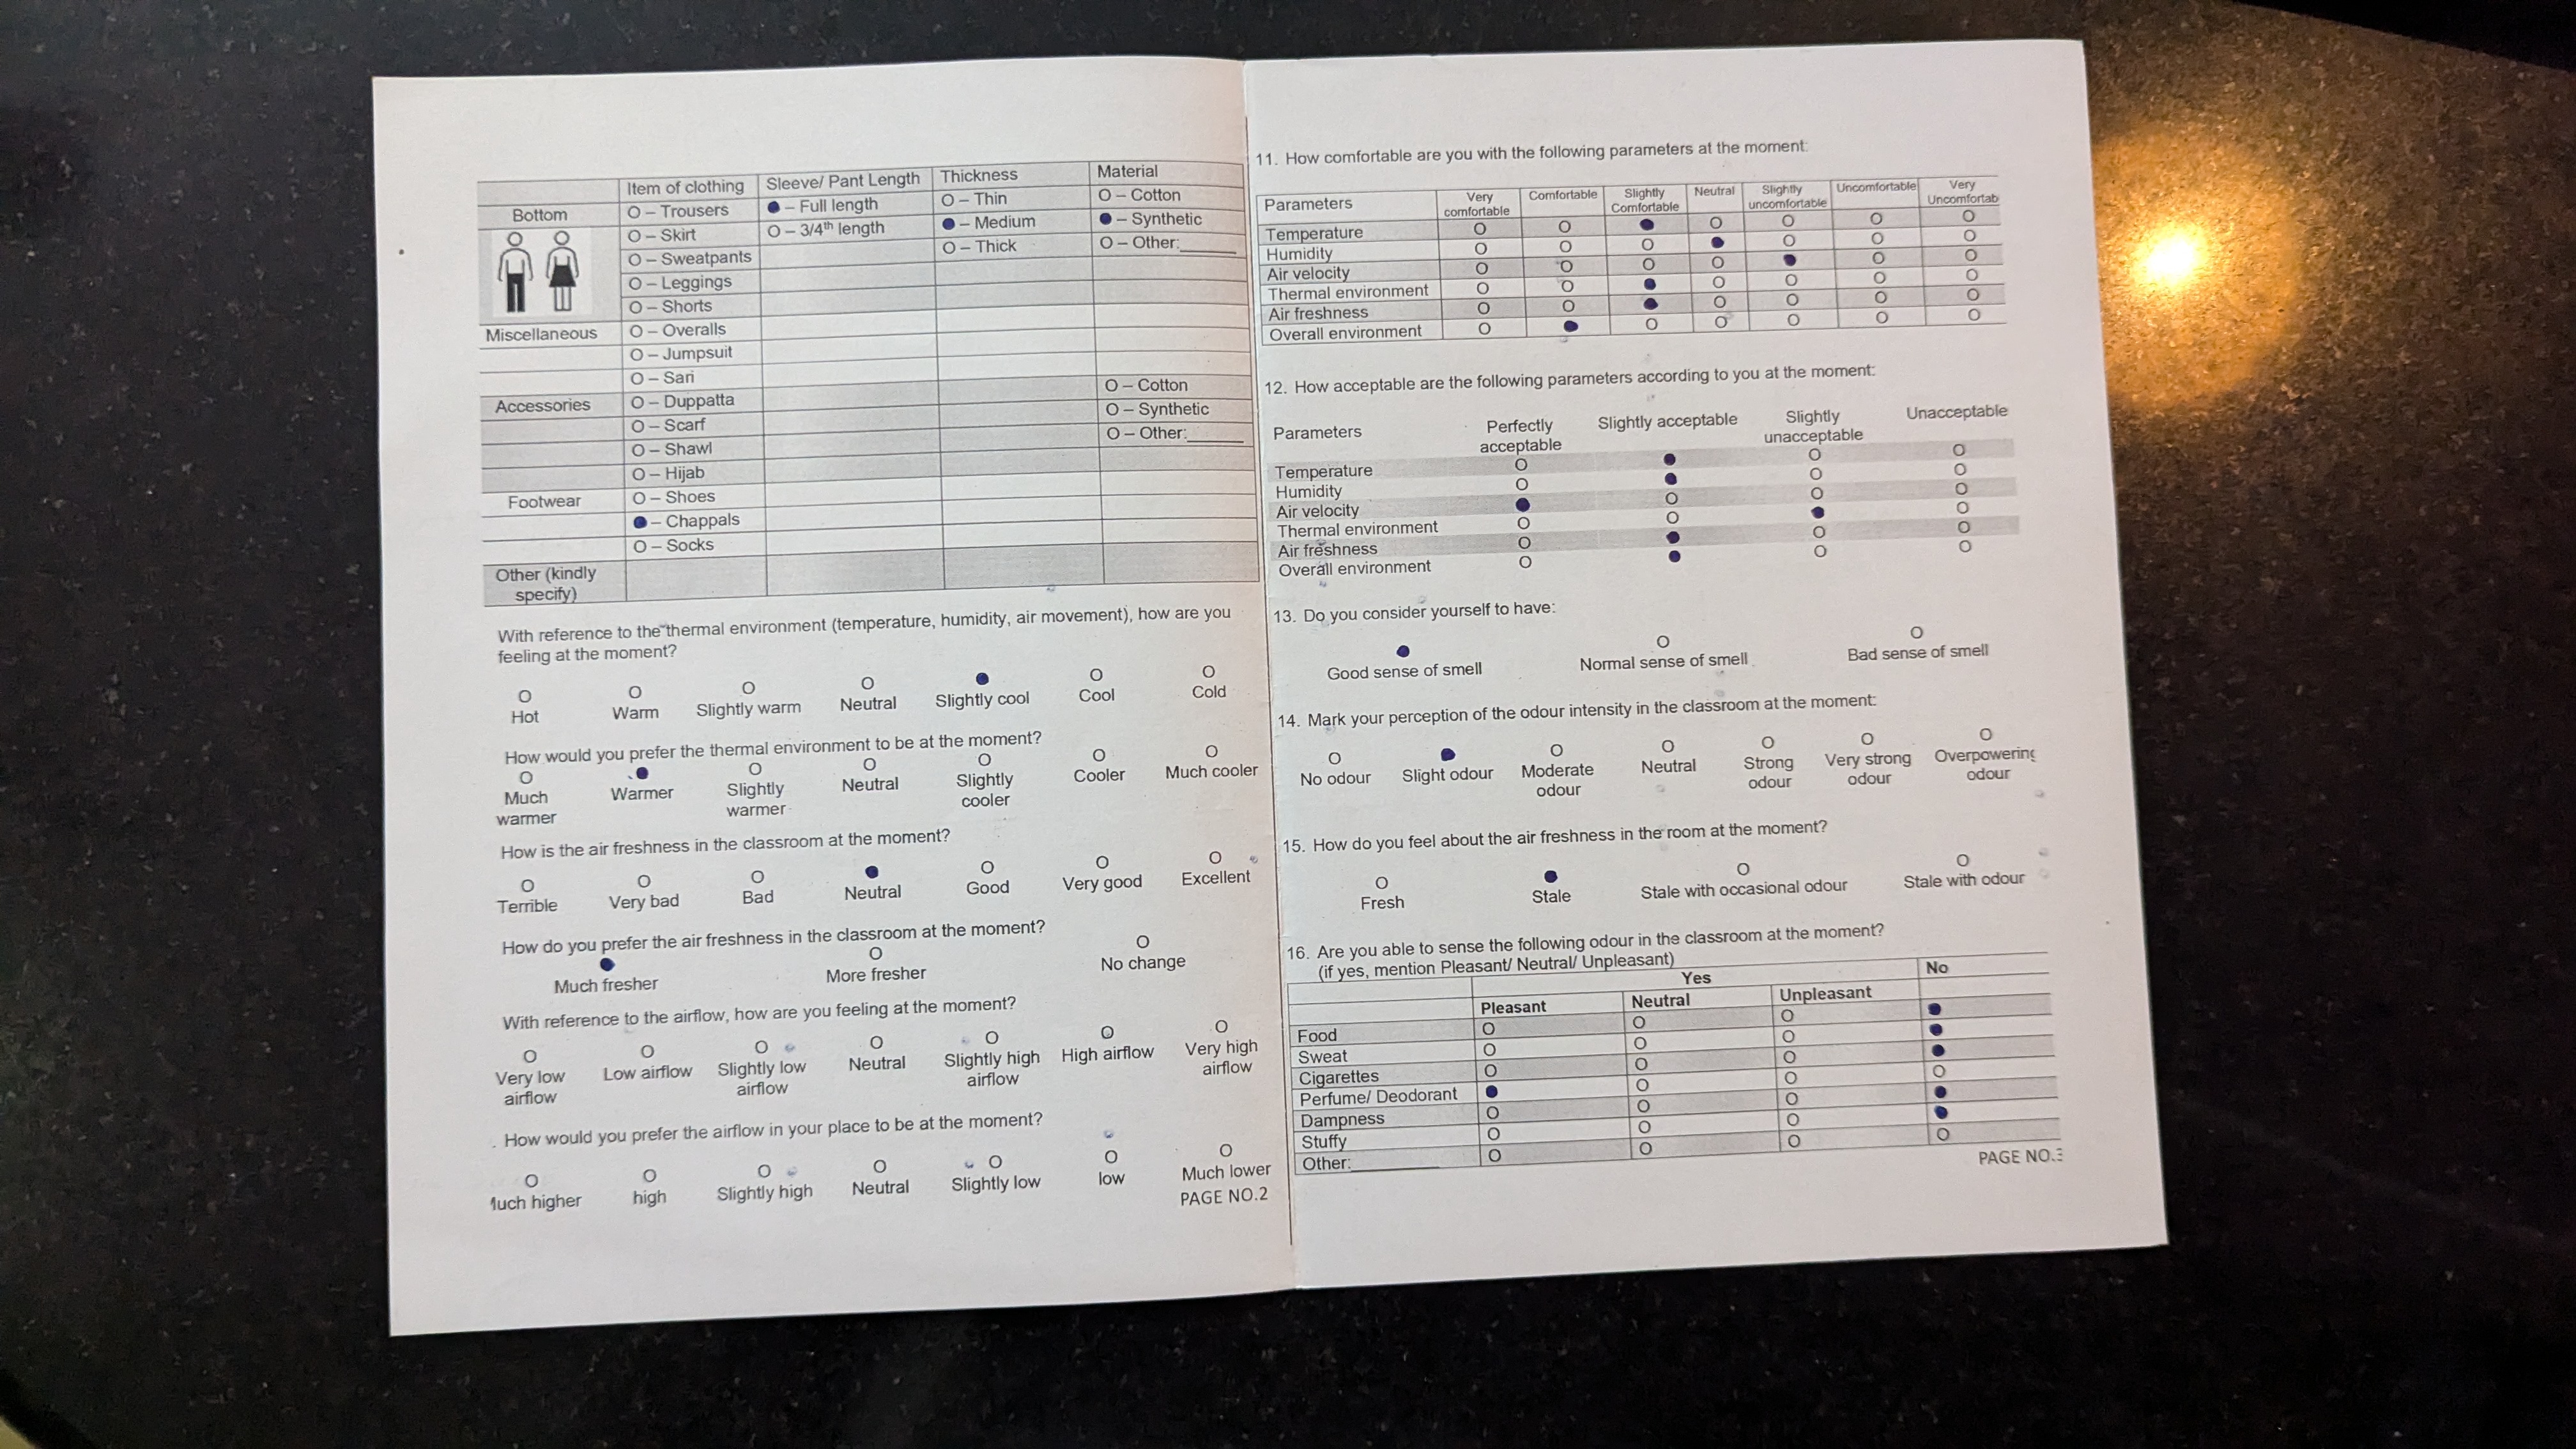 Item of clothing Sleeve/ Pant Length Thickness Material
Bottom O – Trousers ● – Full length O – Thin O – Cotton
O – Skirt O – 3/4th length ● – Medium ● – Synthetic
O – Sweatpants O – Thick O – Other:______
O – Leggings
O – Shorts
Miscellaneous O – Overalls
O – Jumpsuit
O – Sari
Accessories O – Duppatta O – Cotton
O – Scarf O – Synthetic
O – Shawl O – Other:______
O – Hijab
Footwear O – Shoes
● – Chappals
O – Socks
Other (kindly
specify)
With reference to the thermal environment (temperature, humidity, air movement), how are you
feeling at the moment?
O O O O ● O O
Hot Warm Slightly warm Neutral Slightly cool Cool Cold
How would you prefer the thermal environment to be at the moment?
O ● O O O O O
Much Warmer Slightly Neutral Slightly Cooler Much cooler
warmer warmer cooler
How is the air freshness in the classroom at the moment?
O O O ● O O O
Terrible Very bad Bad Neutral Good Very good Excellent
How do you prefer the air freshness in the classroom at the moment?
● O O
Much fresher More fresher No change
With reference to the airflow, how are you feeling at the moment?
O O O O O O O
Very low Low airflow Slightly low Neutral Slightly high High airflow Very high
airflow airflow airflow airflow
How would you prefer the airflow in your place to be at the moment?
O O O O O O O
uch higher high Slightly high Neutral Slightly low low Much lower
PAGE NO.2
11. How comfortable are you with the following parameters at the moment:
Parameters Very Comfortable Slightly Neutral Slightly Uncomfortable Very
comfortable Comfortable uncomfortable Uncomfortab
Temperature O O ● O O O O
Humidity O O O ● O O O
Air velocity O O O O ● O O
Thermal environment O O ● O O O O
Air freshness O O ● O O O O
Overall environment O ● O O O O O
12. How acceptable are the following parameters according to you at the moment:
Parameters Perfectly Slightly acceptable Slightly Unacceptable
acceptable unacceptable
Temperature O ● O O
Humidity O ● O O
Air velocity ● O O O
Thermal environment O O ● O
Air freshness O ● O O
Overall environment O ● O O
13. Do you consider yourself to have:
● O O
Good sense of smell Normal sense of smell Bad sense of smell
14. Mark your perception of the odour intensity in the classroom at the moment:
O ● O O O O O
No odour Slight odour Moderate Neutral Strong Very strong Overpowering
odour odour odour odour
15. How do you feel about the air freshness in the room at the moment?
O ● O O
Fresh Stale Stale with occasional odour Stale with odour
16. Are you able to sense the following odour in the classroom at the moment?
(if yes, mention Pleasant/ Neutral/ Unpleasant)
Yes No
Pleasant Neutral Unpleasant
Food O O O ●
Sweat O O O ●
Cigarettes O O O ●
Perfume/ Deodorant ● O O O
Dampness O O O ●
Stuffy O O O ●
Other:__________ O O O O
PAGE NO.3